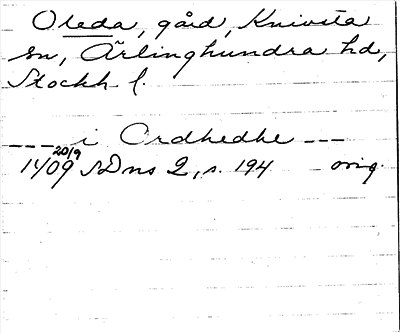 Oleda, gård, Knivsta
sn, Ärlinghundra hd,
Stockh l.
--- i Ordhedhe ---
1409 20/9 SDns 2, s. 194 orig.